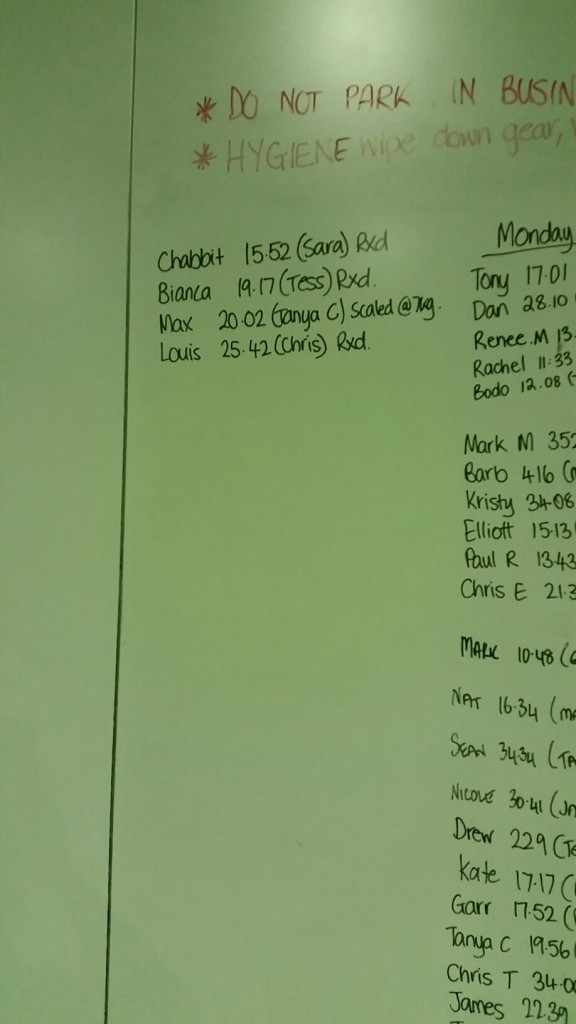 * DO NOT PARK IN BUSIN
* HYGIENE wipe down gear,
Chabbit 15.52 (Sara) Rxd
Bianca 19.17 (Tess) Rxd.
Max 20.02 (Tanya C) Scaled @ 7kg.
Louis 25.42 (Chris) Rxd.
Monday
Tony 17.01
Dan 28.10
Renee.M 13.
Rachel 11:33
Bodo 12.08 (
Mark M 352
Barb 416 (
Kristy 34.08
Elliott 15.13
Paul R 13.43
Chris E 21.3
MARK 10.48 (
NAT 16.34 (
SEAN 34.34 (TA
NICOLE 30.41 (JA
Drew 229 (Te
Kate 17.17 (
Garr 17.52 (
Tanya C 19.56
Chris T 34.00
James 22.39